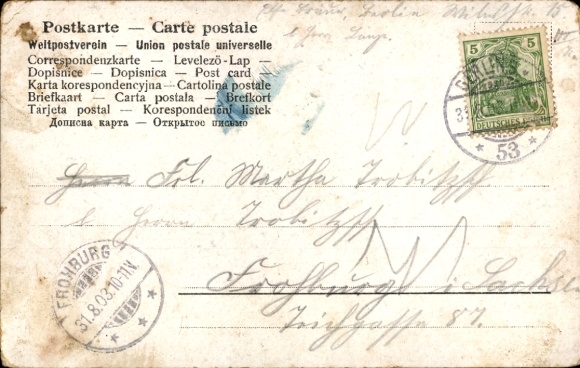 Postkarte — Carte postale
Weltpostverein — Union postale universelle
Correspondenzkarte — Levelező-Lap —
Dopiśnice — Dopisnica — Post card
Karta korespondencyjna — Cartolina postale
Briefkaart — Carta postala — Brefkort
Tarjeta postal — Korespondenčni listek
Дописна карта — Открытое письмо
Berlin
5 5
DEUTSCHES REICH
BERLIN
* 53 *
Herrn Frl. Martha Trobitzsch
Herrn Trobitzsch
Frohburg i. Sachsen
Teichgasse 87.
FROHBURG
31.8.03.10-11N.